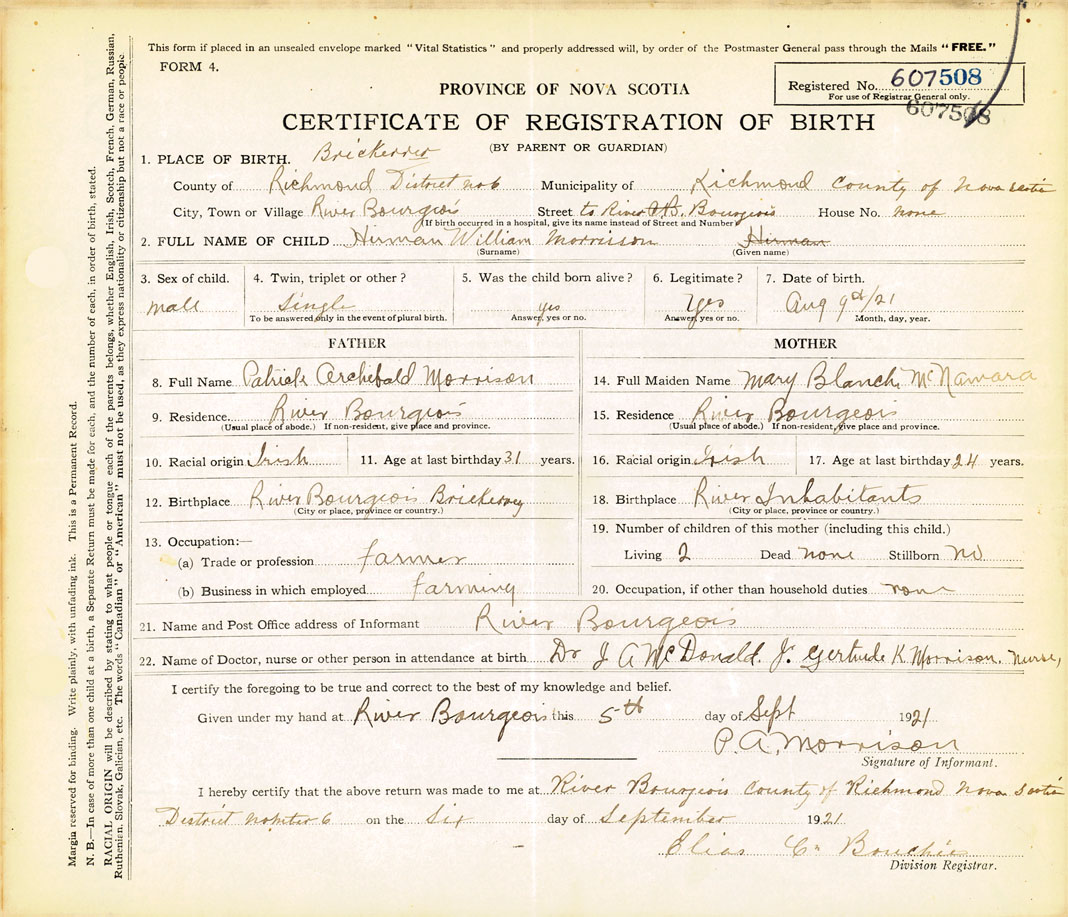 This form if placed in an unsealed envelope marked "Vital Statistics" and properly addressed will, by order of the Postmaster General pass through the Mails "FREE."
FORM 4.
Registered No. 607508
For use of Registrar General only.
607508
PROVINCE OF NOVA SCOTIA
CERTIFICATE OF REGISTRATION OF BIRTH
(BY PARENT OR GUARDIAN)
1. PLACE OF BIRTH.
County of Richmond District no 6 Municipality of Richmond County of Nova Scotia
City, Town or Village River Bourgeois Street to River Bourgeois House No. none
(If birth occurred in a hospital, give its name instead of Street and Number)
2. FULL NAME OF CHILD Hirman William Morrisson Hirman
(Surname) (Given name)
3. Sex of child. 4. Twin, triplet or other? 5. Was the child born alive? 6. Legitimate? 7. Date of birth.
male Single yes Yes Aug 9th/21
To be answered only in the event of plural birth. Answer, yes or no. Answer, yes or no. Month, day, year.
FATHER
8. Full Name Patrick Archibald Morrison
9. Residence River Bourgeois
(Usual place of abode.) If non-resident, give place and province.
10. Racial origin Irish 11. Age at last birthday 31 years.
12. Birthplace River Bourgeois Brickery
(City or place, province or country.)
13. Occupation:—
(a) Trade or profession farmer
(b) Business in which employed farming
MOTHER
14. Full Maiden Name Mary Blanch McNamara
15. Residence River Bourgeois
(Usual place of abode.) If non-resident, give place and province.
16. Racial origin Irish 17. Age at last birthday 24 years.
18. Birthplace River Inhabitants
(City or place, province or country.)
19. Number of children of this mother (including this child.)
Living 2 Dead none Stillborn no
20. Occupation, if other than household duties none
21. Name and Post Office address of Informant River Bourgeois
22. Name of Doctor, nurse or other person in attendance at birth Dr J A McDonald. Jr Gertrude K. Morrison. Nurse,
I certify the foregoing to be true and correct to the best of my knowledge and belief.
Given under my hand at River Bourgeois this 5th day of Sept 1921
P. A. Morrison
Signature of Informant.
I hereby certify that the above return was made to me at River Bourgeois County of Richmond Nova Scotia
District number 6 on the Six day of September 1921.
Elias C. Bouchie
Division Registrar.
Margin reserved for binding. Write plainly, with unfading ink. This is a Permanent Record.
N. B.—In case of more than one child at a birth, a Separate Return must be made for each, and the number of each, in order of birth, stated.
RACIAL ORIGIN will be described by stating to what people or tongue each of the parents belongs, whether English, Irish, Scotch, French, German, Russian,
Ruthenian, Slovak, Galician, etc. The words "Canadian" or "American" must not be used, as they express nationality or citizenship but not a race or people.